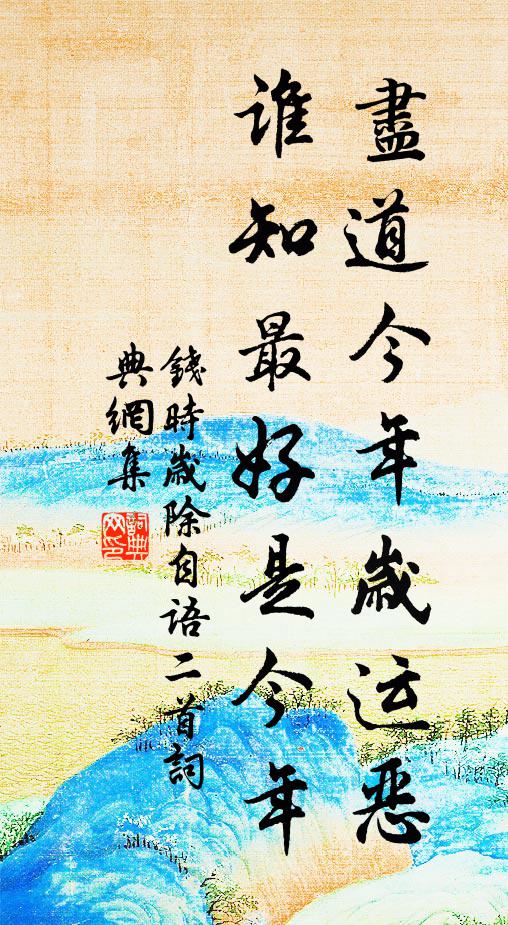 盡道今年歲运惡
谁知最好是今年
錢時歲除自语二首詞
典網集
詞典
网印